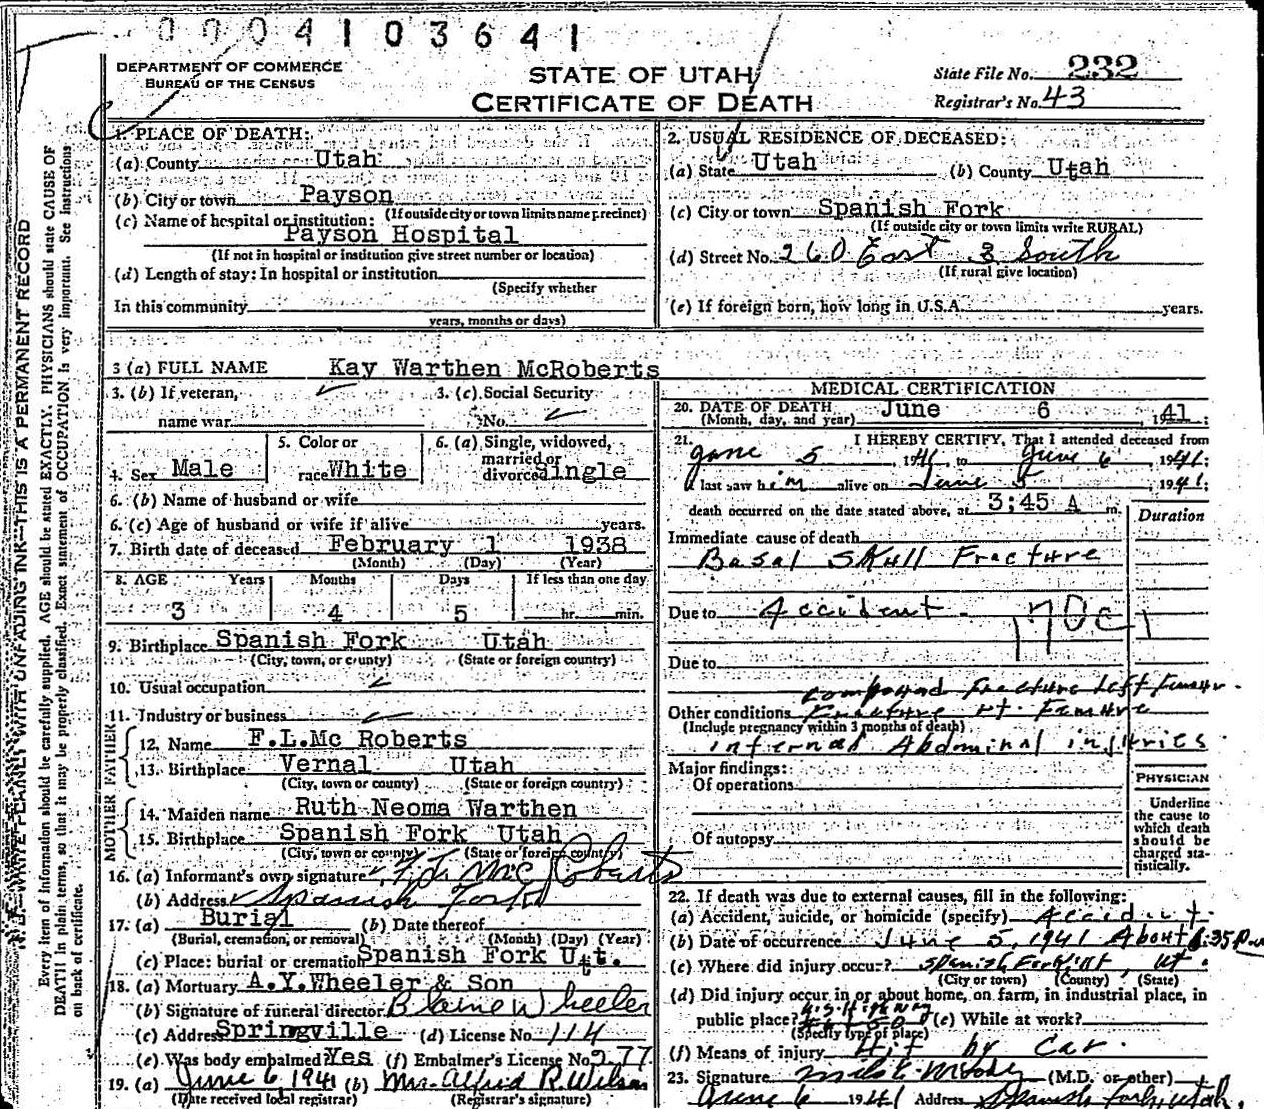 0004103641
DEPARTMENT OF COMMERCE
BUREAU OF THE CENSUS
STATE OF UTAH
CERTIFICATE OF DEATH
State File No. 232
Registrar's No. 43
N. B.—WRITE PLAINLY WITH UNFADING INK—THIS IS A PERMANENT RECORD
Every item of information should be carefully supplied. AGE should be stated EXACTLY. PHYSICIANS should state CAUSE OF
DEATH in plain terms, so that it may be properly classified. Exact statement of OCCUPATION is very important. See Instructions
on back of certificate.
1. PLACE OF DEATH:
(a) County Utah
(b) City or town Payson
(If outside city or town limits name precinct)
(c) Name of hospital or institution:
Payson Hospital
(If not in hospital or institution give street number or location)
(d) Length of stay: In hospital or institution
(Specify whether
In this community
years, months or days)
2. USUAL RESIDENCE OF DECEASED:
(a) State Utah (b) County Utah
(c) City or town Spanish Fork
(If outside city or town limits write RURAL)
(d) Street No. 260 East 3 South
(If rural give location)
(e) If foreign born, how long in U.S.A. years.
3 (a) FULL NAME Kay Warthen McRoberts
3. (b) If veteran, 3. (c) Social Security
name war No.
4. Sex Male 5. Color or race White 6. (a) Single, widowed, married or divorced Single
6. (b) Name of husband or wife
6. (c) Age of husband or wife if alive years.
7. Birth date of deceased February 1 1938
(Month) (Day) (Year)
8. AGE Years Months Days If less than one day
3 4 5 hr. min.
9. Birthplace Spanish Fork Utah
(City, town, or county) (State or foreign country)
10. Usual occupation
11. Industry or business
FATHER
12. Name F.L.Mc Roberts
13. Birthplace Vernal Utah
(City, town or county) (State or foreign country)
MOTHER
14. Maiden name Ruth Neoma Warthen
15. Birthplace Spanish Fork Utah
(City, town or county) (State or foreign country)
16. (a) Informant's own signature F. L. McRoberts
(b) Address Spanish Fork
17. (a) Burial (b) Date thereof
(Burial, cremation, or removal) (Month) (Day) (Year)
(c) Place: burial or cremation Spanish Fork Ut.
18. (a) Mortuary A.Y.Wheeler & Son
(b) Signature of funeral director Blaine Wheeler
(c) Address Springville (d) License No. 114
(e) Was body embalmed Yes (f) Embalmer's License No. 277
19. (a) June 6, 1941 (b) Mrs. Alfred R. Wilson
(Date received local registrar) (Registrar's signature)
MEDICAL CERTIFICATION
20. DATE OF DEATH June 6 1941;
(Month, day, and year)
21. I HEREBY CERTIFY, That I attended deceased from
June 5, 1941, to June 6, 1941;
I last saw him alive on June 5 1941;
death occurred on the date stated above, at 3:45 A m.
Duration
Immediate cause of death
Basal Skull Fracture
Due to Accident 170c
Due to
Compound Fracture Left Femur.
Other conditions Fracture rt. Femure
(Include pregnancy within 3 months of death)
internal Abdominal injuries
Major findings:
Of operations
Of autopsy
PHYSICIAN
Underline
the cause to
which death
should be
charged sta-
tistically.
22. If death was due to external causes, fill in the following:
(a) Accident, suicide, or homicide (specify) Accident
(b) Date of occurrence June 5, 1941 About :35 P.m
(c) Where did injury occur? Spanish Fork, Ut.
(City or town) (County) (State)
(d) Did injury occur in or about home, on farm, in industrial place, in
public place? (e) While at work?
(Specify type of place)
(f) Means of injury Hit by Car.
23. Signature Moody (M.D. or other)
June 6 1941 Address Spanish Fork, Utah.